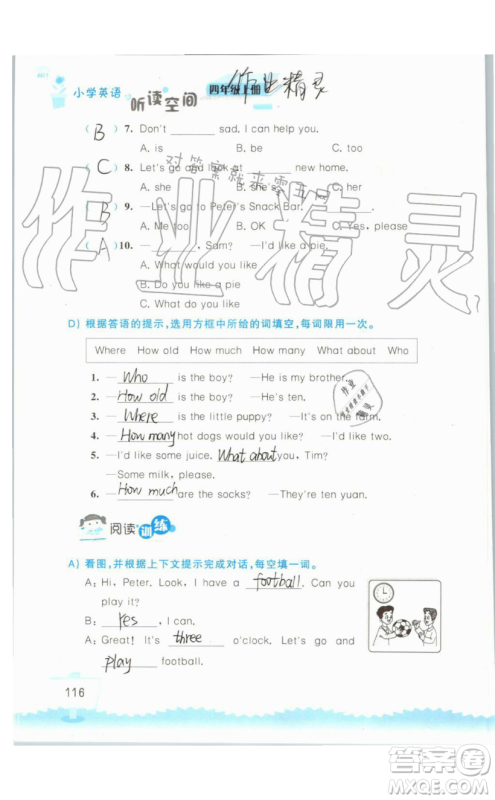 小学英语 听读空间 四年级上册 作业精灵
对答案就来零五网
作业精灵
( B ) 7. Don't ______ sad. I can help you.
A. is B. be C. too
( C ) 8. Let's go and look at ______ new home.
A. she B. she's C. her
( B ) 9. —Let's go to Peter's Snack Bar. —______
A. Me too B. OK C. Yes, please
( A ) 10. —______, Sam? —I'd like a pie.
A. What would you like
B. Do you like a pie
C. What do you like
D) 根据答语的提示，选用方框中所给的词填空，每词限用一次。
Where How old How much How many What about Who
1. —Who is the boy? —He is my brother.
2. —How old is the boy? —He's ten.
3. —Where is the little puppy? —It's on the farm.
4. —How many hot dogs would you like? —I'd like two.
5. —I'd like some juice. What about you, Tim?
—Some milk, please.
6. —How much are the socks? —They're ten yuan.
阅读训练
A) 看图，并根据上下文提示完成对话，每空填一词。
A: Hi, Peter. Look, I have a football. Can you
play it?
B: Yes, I can.
A: Great! It's three o'clock. Let's go and
play football.
116
答案圈
MXQE.COM